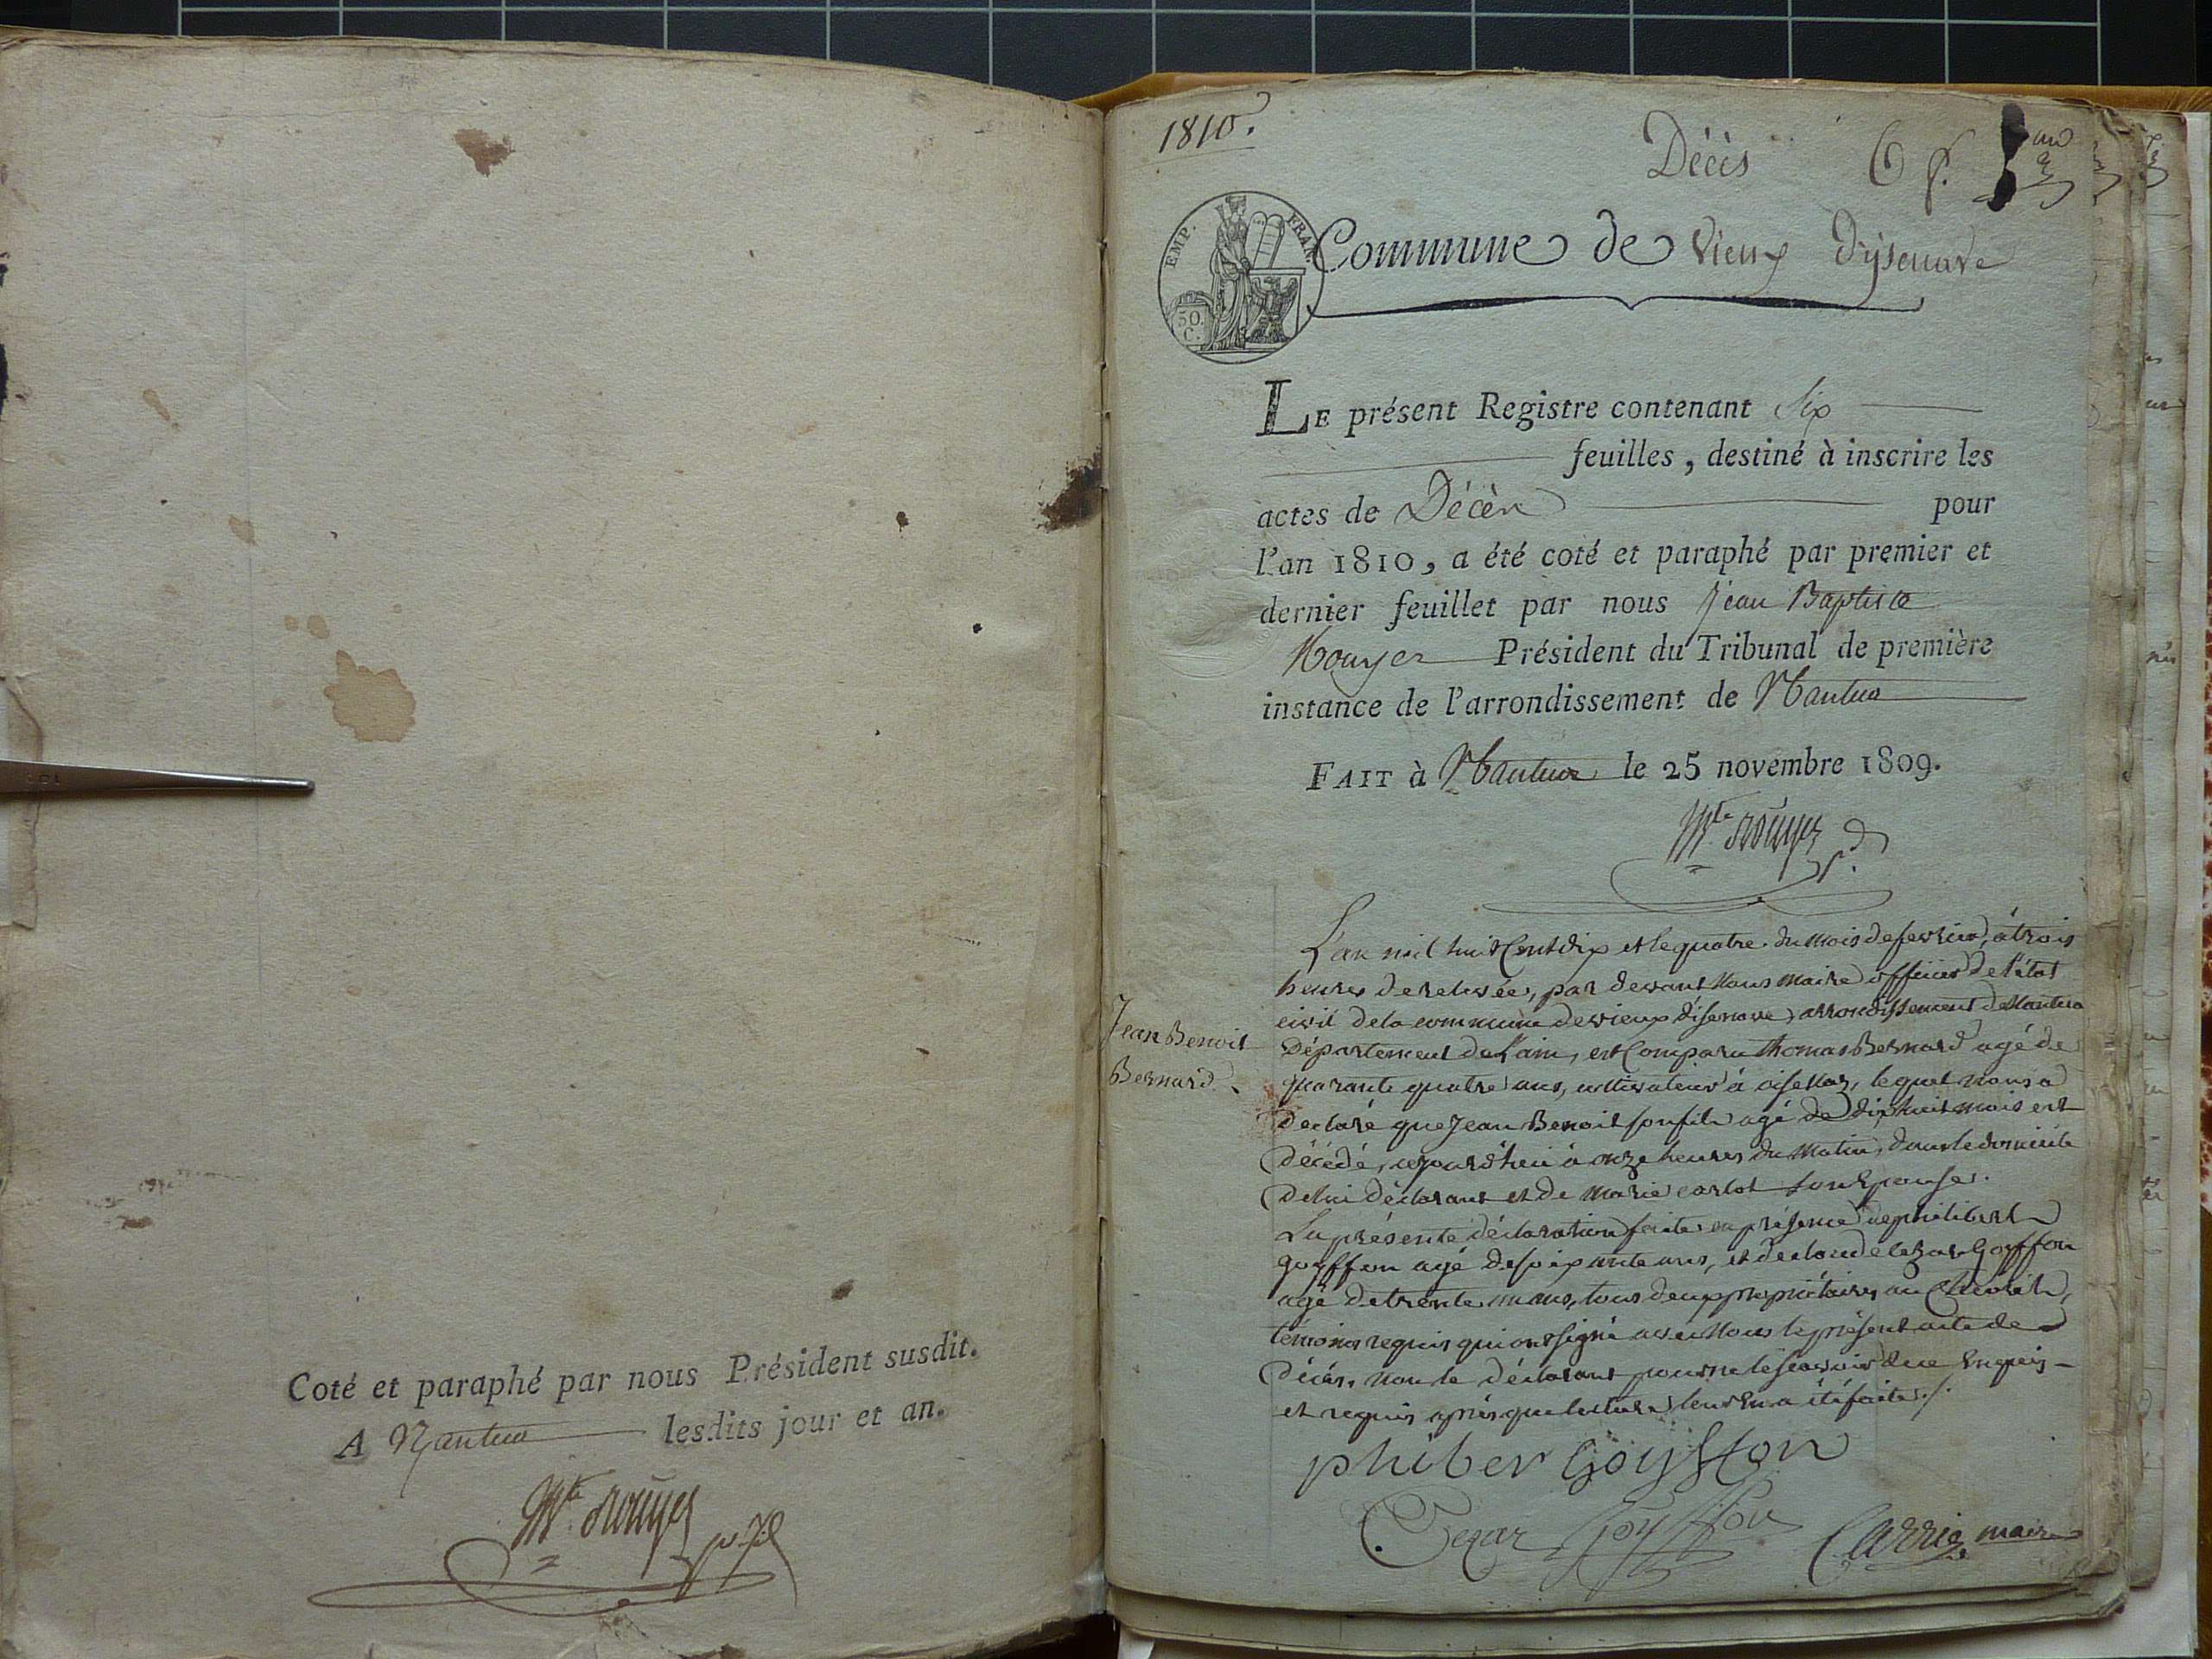 Coté et paraphé par nous Président susdit.
A Nantua lesdits jour et an.
1810.
Décès
EMP. FRAN.
50.
C.
Commune de Vieux d'ysenave
LE présent Registre contenant Six
feuilles, destiné à inscrire les
actes de Décès pour
l'an 1810, a été coté et paraphé par premier et
dernier feuillet par nous Jean Baptiste
Rouyer Président du Tribunal de première
instance de l'arrondissement de Nantua
FAIT à Nantua le 25 novembre 1809.
Jean Benoit
Bernard
L'an mil huit Cent dix et le quatre du mois de fevrier, à trois
heures de relevée, par devant Nous maire officier de l'état
civil de la commune de vieux d'isenave, arrondissement de Nantua
Département de L'ain, est Comparu thomas Bernard agé de
quarante quatre ans, cultivateur à oisellaz, lequel nous a
declaré que Jean Benoit son fils agé de dix huit mois est
Décédé, cejourd'hui à onze heures du Matin, dans le domicile
de lui déclarant et de Marie carlot son Epouse.
La présente déclaration faite en présence de philibert
goyffon agé de soixante ans, et de claude cezar Goyffon
agé de trente ans, tous deux propriétaires au
témoins requis qui ont signé avec Nous le présent acte de
Décès, non le déclarant pour ne le sçavoir de ce Enquis
et requis après que lecture leur En a été faite ./.
phiber Goyffon
Cezar Goyffon Carrier maire